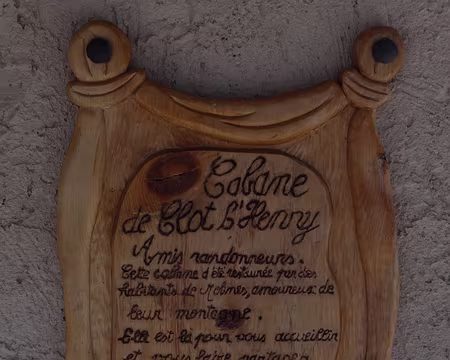 Cabane
de Clot l'Henry
Amis randonneurs.
Cette cabane a été restaurée par des
habitants de Molines, amoureux de
leur montagne.
Elle est là pour vous accueillir
et vous faire partager